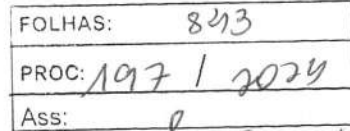 FOLHAS: 843
PROC: 197 / 2024
Ass: